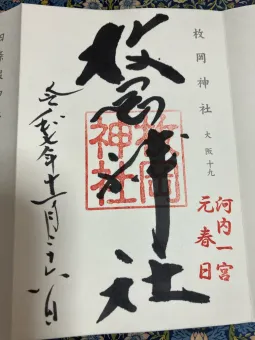 枚岡神社
大阪十九
河内一宮
元春日
枚岡神社
枚岡
神社
令和元年十一月二十六日